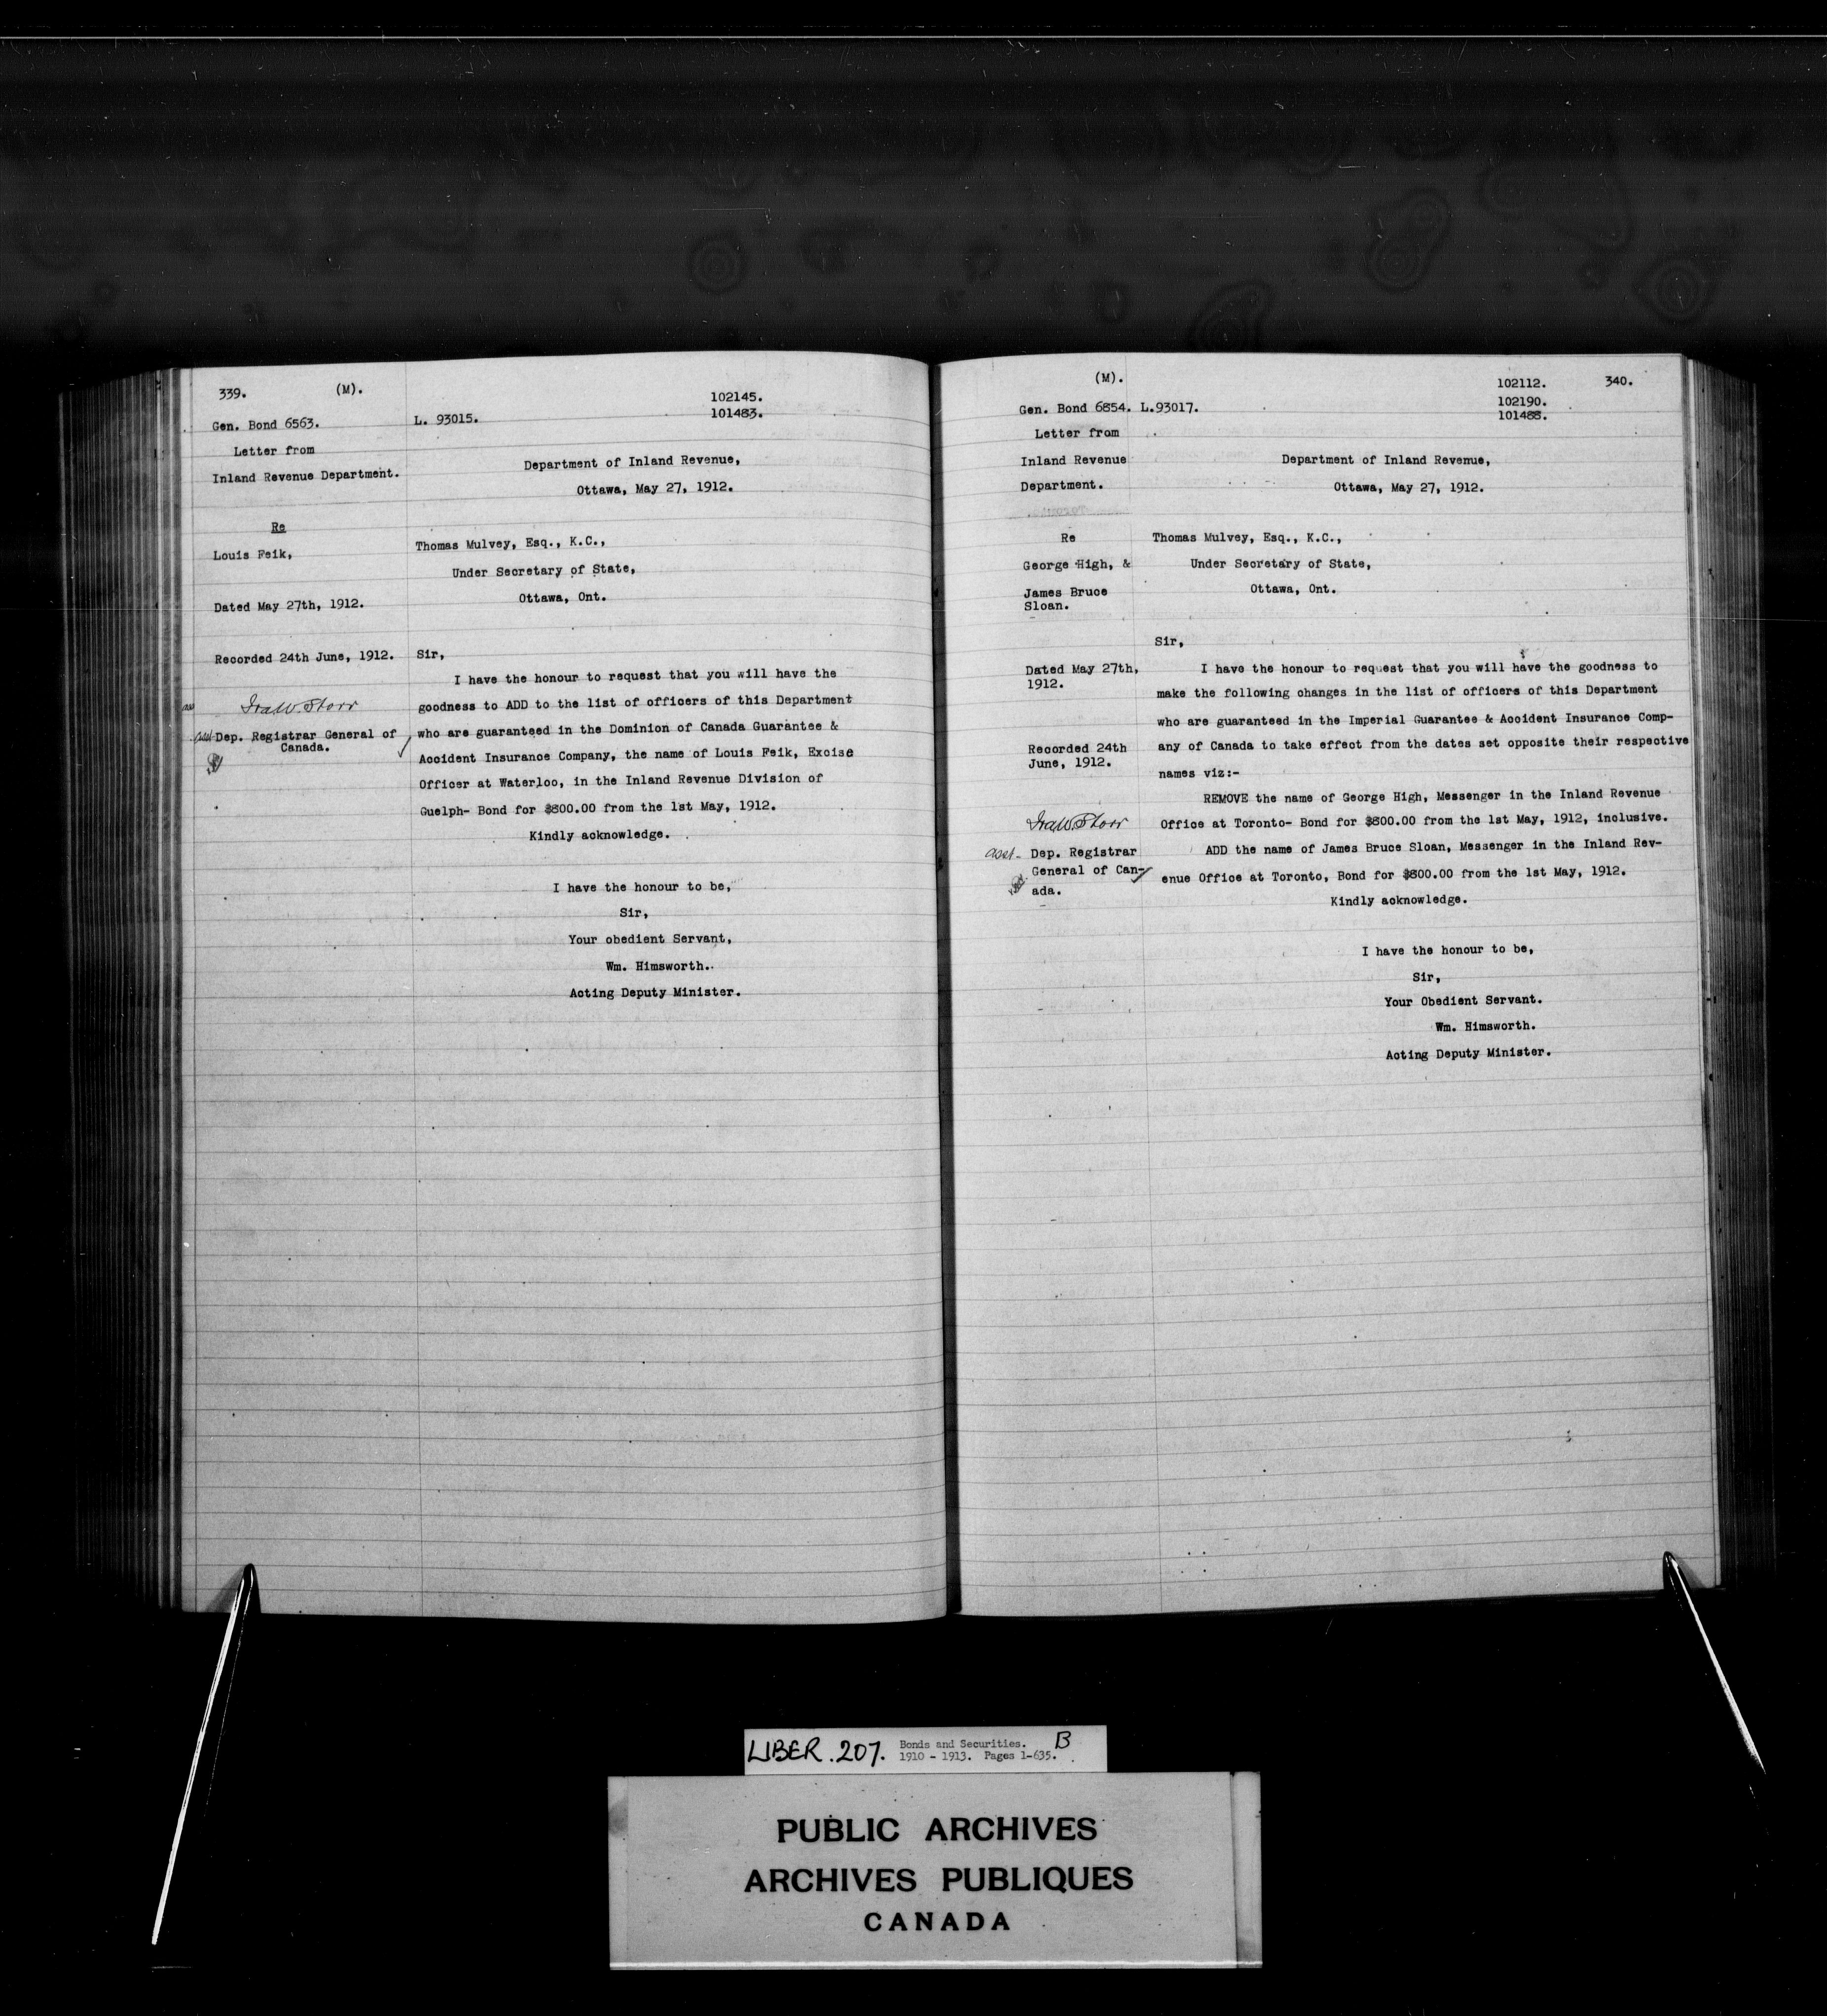 339.
(M).
102145.
101483.
Gen. Bond 6563.
L. 93015.
Letter from
Inland Revenue Department.
Department of Inland Revenue,
Ottawa, May 27, 1912.
Re
Louis Feik,
Dated May 27th, 1912.
Recorded 24th June, 1912.
Ira W. Storr
Asst Dep. Registrar General of
Canada.
Thomas Mulvey, Esq., K.C.,
Under Secretary of State,
Ottawa, Ont.
Sir,
I have the honour to request that you will have the
goodness to ADD to the list of officers of this Department
who are guaranteed in the Dominion of Canada Guarantee &
Accident Insurance Company, the name of Louis Feik, Excise
Officer at Waterloo, in the Inland Revenue Division of
Guelph- Bond for $800.00 from the 1st May, 1912.
Kindly acknowledge.
I have the honour to be,
Sir,
Your obedient Servant,
Wm. Himsworth.
Acting Deputy Minister.
(M).
102112.
340.
102190.
101488.
Gen. Bond 6854.
L.93017.
Letter from
Inland Revenue
Department.
Department of Inland Revenue,
Ottawa, May 27, 1912.
Re
George High, &
James Bruce
Sloan.
Dated May 27th,
1912.
Recorded 24th
June, 1912.
Ira W. Storr
asst- Dep. Registrar
General of Can-
ada.
Thomas Mulvey, Esq., K.C.,
Under Secretary of State,
Ottawa, Ont.
Sir,
I have the honour to request that you will have the goodness to
make the following changes in the list of officers of this Department
who are guaranteed in the Imperial Guarantee & Accident Insurance Comp-
any of Canada to take effect from the dates set opposite their respective
names viz:-
REMOVE the name of George High, Messenger in the Inland Revenue
Office at Toronto- Bond for $800.00 from the 1st May, 1912, inclusive.
ADD the name of James Bruce Sloan, Messenger in the Inland Rev-
enue Office at Toronto, Bond for $800.00 from the 1st May, 1912.
Kindly acknowledge.
I have the honour to be,
Sir,
Your Obedient Servant.
Wm. Himsworth.
Acting Deputy Minister.
LIBER. 207. Bonds and Securities. B
1910 - 1913. Pages 1-635.
PUBLIC ARCHIVES
ARCHIVES PUBLIQUES
CANADA